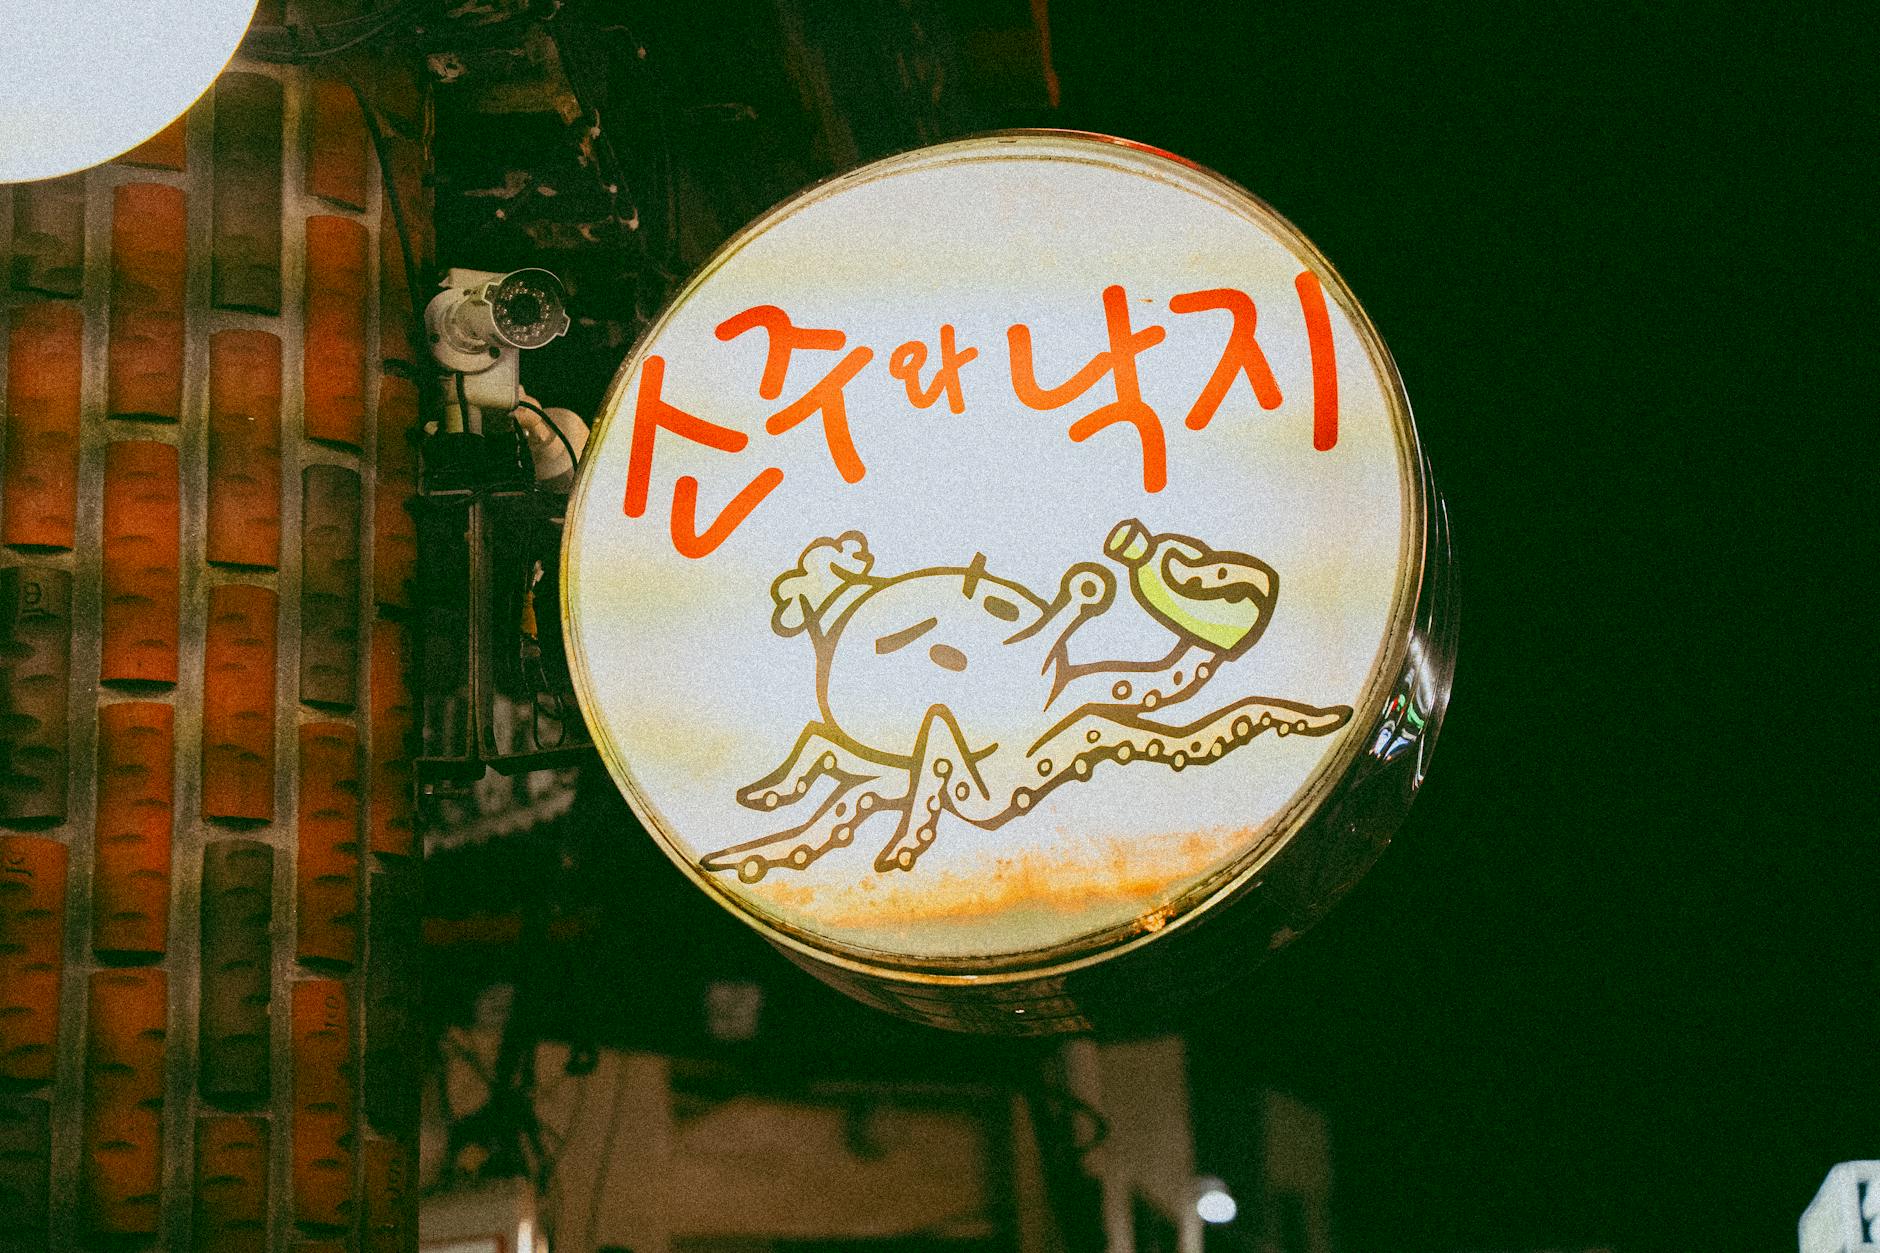 소주와 낙지